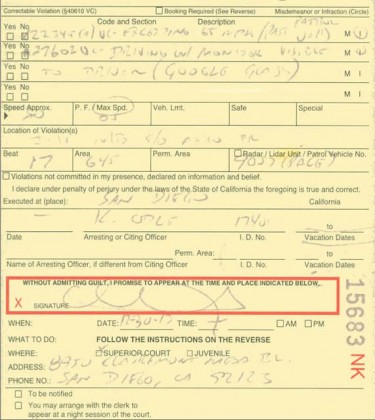 Correctable Violation (§40610 VC) Booking Required (See Reverse) Misdemeanor or Infraction (Circle)
Yes No Code and Section Description
VC- EXCEEDING 65 MPH M I
Yes No 27602 VC- DRIVING W/ MONITOR VISIBLE M I
Yes No TO DRIVER (GOOGLE GLASS) M I
Yes No M I
Speed Approx. P. F. / Max Spd. Veh. Lmt. Safe Special
65
Location of Violation(s)
Beat Area Perm. Area Radar / Lidar Unit / Patrol Vehicle No.
17 645 (PACE)
Violations not committed in my presence, declared on information and belief.
I declare under penalty of perjury under the laws of the State of California the foregoing is true and correct.
Executed at (place): SAN DIEGO California
K. to
Date Arresting or Citing Officer I. D. No. Vacation Dates
Perm. Area: to
Name of Arresting Officer, if different from Citing Officer I. D. No. Vacation Dates
WITHOUT ADMITTING GUILT, I PROMISE TO APPEAR AT THE TIME AND PLACE INDICATED BELOW.
X SIGNATURE
WHEN: DATE: TIME: AM PM
WHAT TO DO: FOLLOW THE INSTRUCTIONS ON THE REVERSE
WHERE: SUPERIOR COURT JUVENILE
ADDRESS: CLAIREMONT MESA BL.
PHONE NO.: SAN DIEGO, CA 92123
To be notified
You may arrange with the clerk to
appear at a night session of the court.
15683 NK